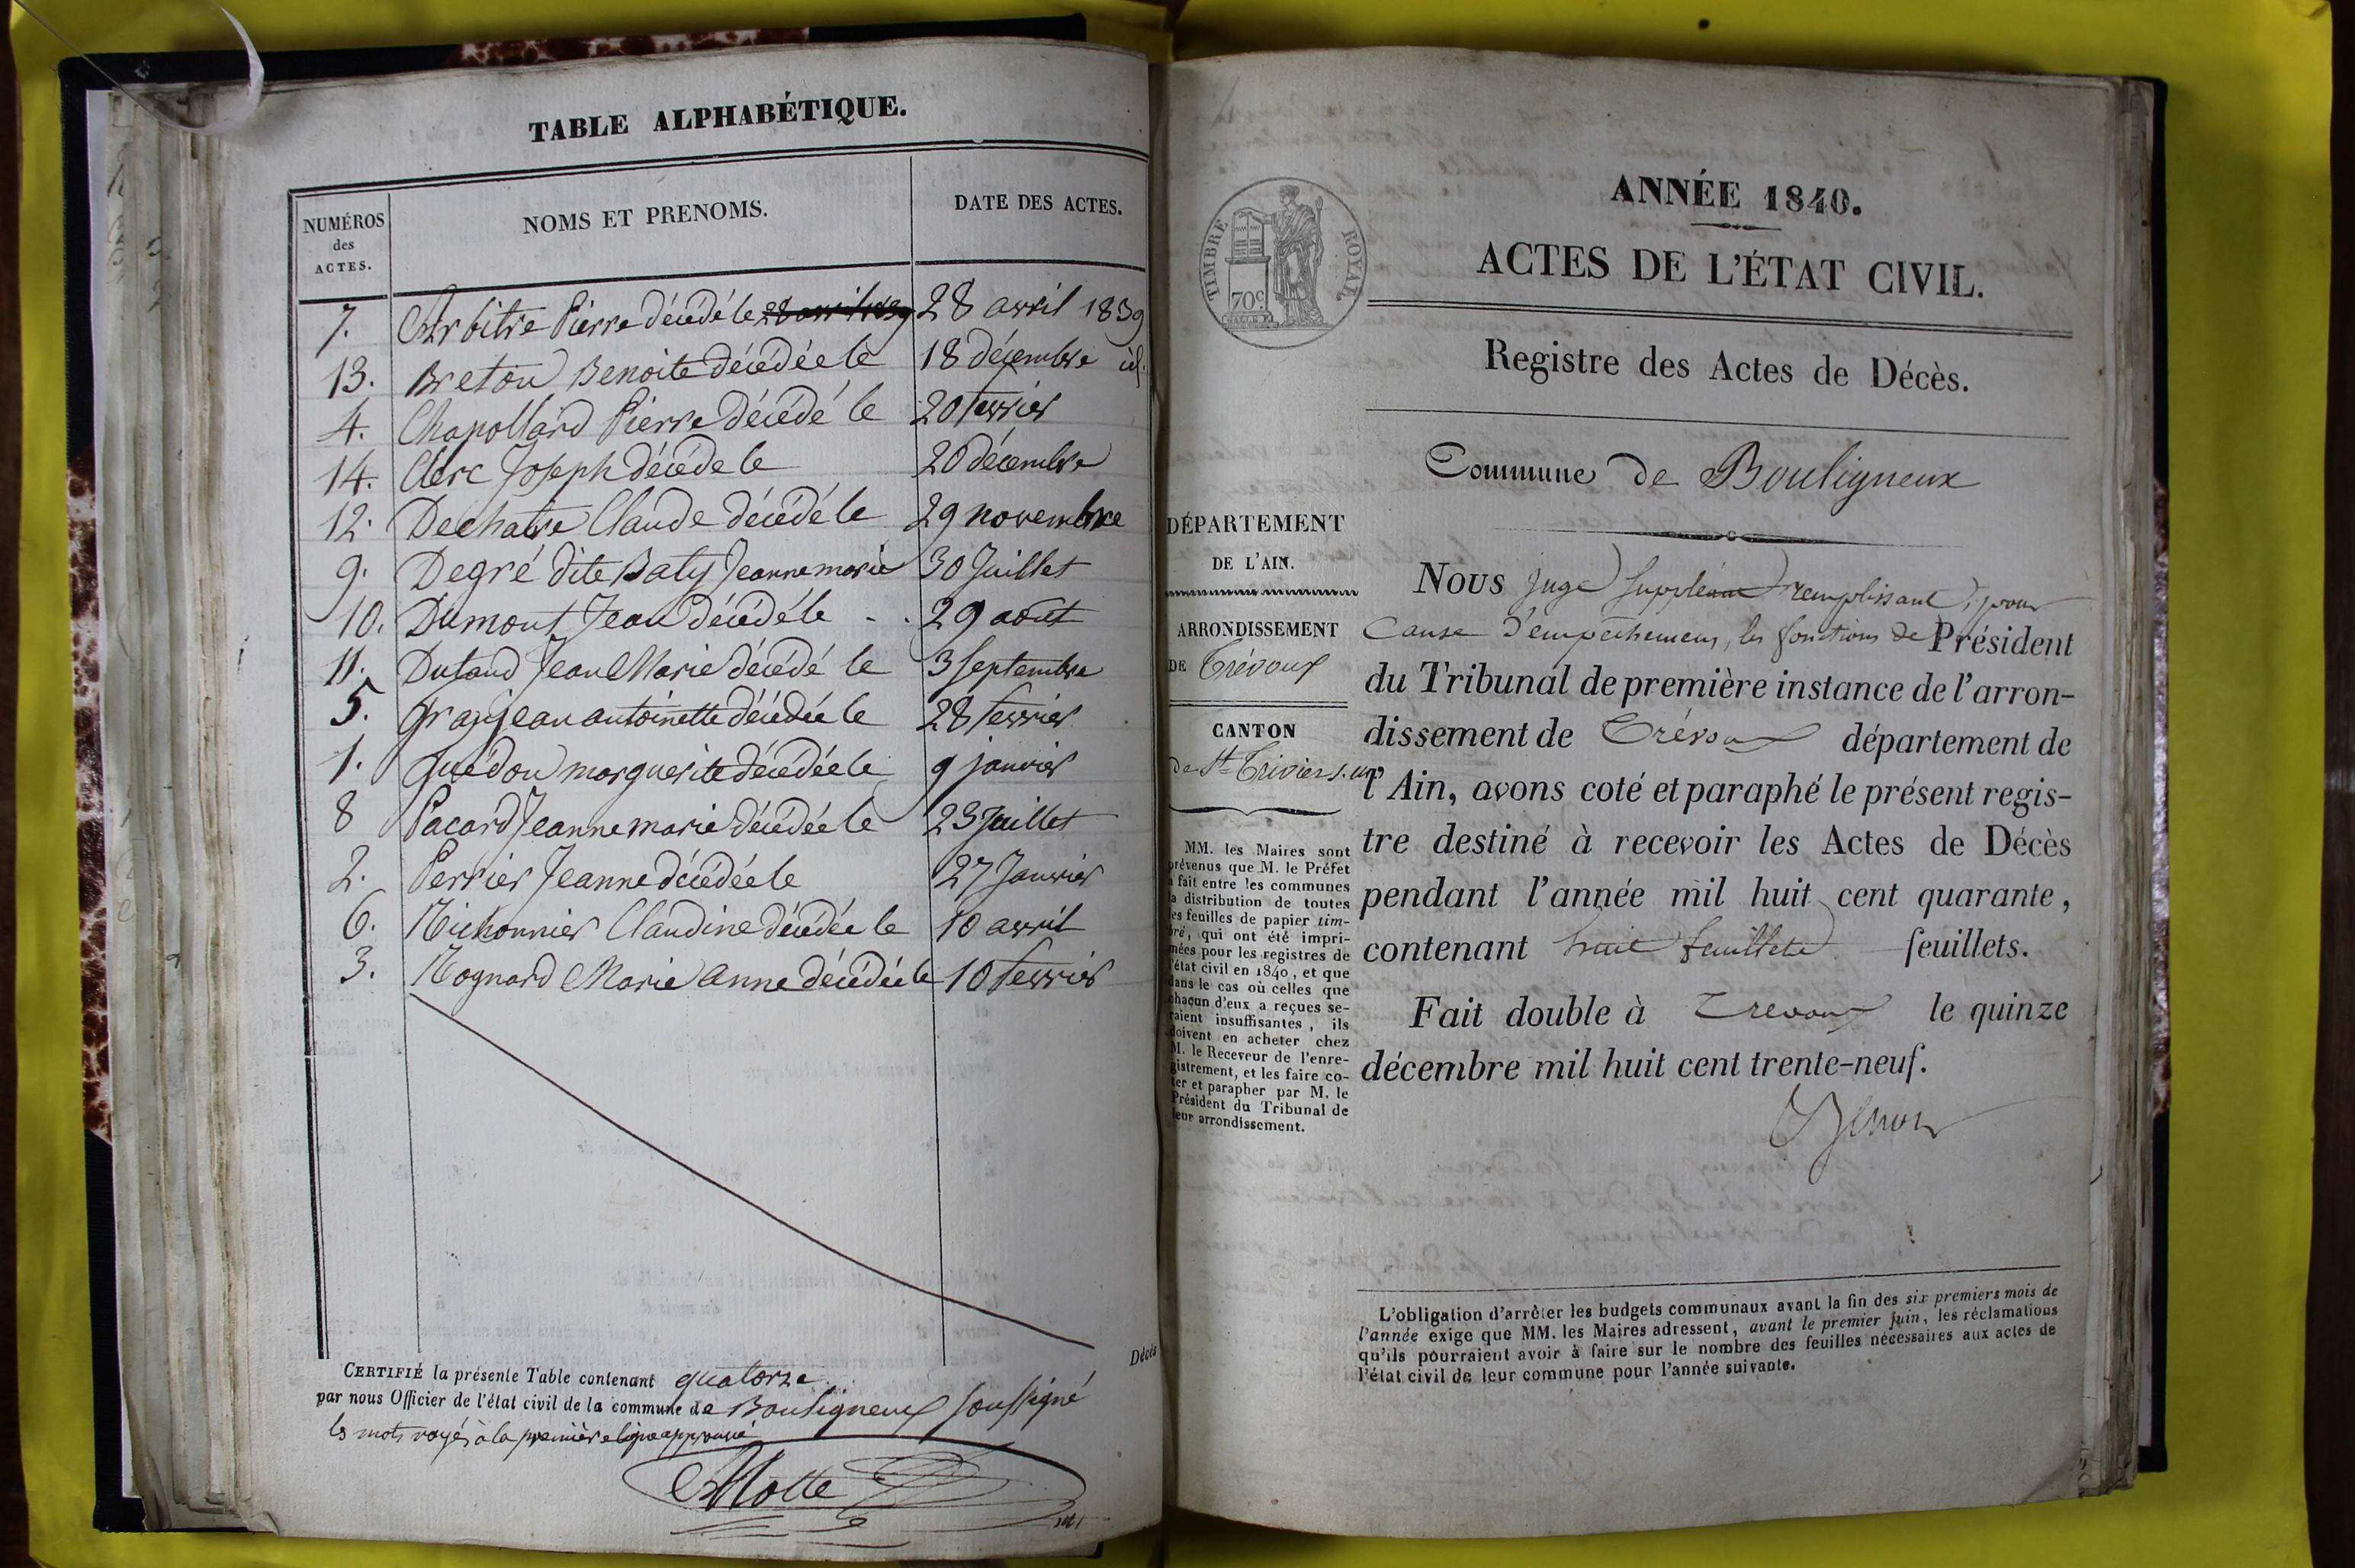 TABLE ALPHABÉTIQUE.
NUMÉROS
des
ACTES.
NOMS ET PRENOMS.
DATE DES ACTES.
7. Arbitre Pierre décédé le 28 avril 1839 28 avril 1839
13. Breton Benoite décédée le 18 décembre id.
4. Chapolard Pierre décédé le 20 fevrier
14. Clerc Joseph décéde le 20 décembre
12. Dechatre Claude décédé le 29 novembre
9. Degré dite Baty Jeanne marie 30 Juillet
10. Dumont Jean décédé le . . 29 août
11. Dufaud Jean Marie décédé le 3 septembre
5. Granjean antoinette décédée le 28 fevrier
1. Guédon marguerite décédée le 9 janvier
8 Pacard Jeanne marie décédée le 23 Juillet
2. Perrier Jeanne décédée le 27 Janvier
6. Richonnier Claudine décédée le 10 avril
3. Rognard Marie anne décédée le 10 fevrier
Décès
CERTIFIÉ la présente Table contenant quatorze
par nous Officier de l'état civil de la commune de Bouligneux soussigné
les mots rayés à la première ligne approuvé
Motte
TIMBRE ROYAL
70c
ANNÉE 1840.
ACTES DE L'ÉTAT CIVIL.
Registre des Actes de Décès.
Commune de Bouligneux
DÉPARTEMENT
DE L'AIN.
ARRONDISSEMENT
DE Trévoux
CANTON
de St Trivier s. un
MM. les Maires sont
prévenus que M. le Préfet
a fait entre les communes
la distribution de toutes
les feuilles de papier tim-
bré, qui ont été impri-
mées pour les registres de
l'état civil en 1840, et que
dans le cas où celles que
chacun d'eux a reçues se-
raient insuffisantes, ils
doivent en acheter chez
M. le Receveur de l'enre-
gistrement, et les faire co-
ter et parapher par M. le
Président du Tribunal de
leur arrondissement.
Nous juge suppléant remplissant, pour
Cause d'empechement, les fonctions de Président
du Tribunal de première instance de l'arron-
dissement de Trévoux département de
l'Ain, avons coté et paraphé le présent regis-
tre destiné à recevoir les Actes de Décès
pendant l'année mil huit cent quarante,
contenant huit feuillets feuillets.
Fait double à Trevoux le quinze
décembre mil huit cent trente-neuf.
L'obligation d'arrêter les budgets communaux avant la fin des six premiers mois de
l'année exige que MM. les Maires adressent, avant le premier juin, les réclamations
qu'ils pourraient avoir à faire sur le nombre des feuilles nécessaires aux actes de
l'état civil de leur commune pour l'année suivante.